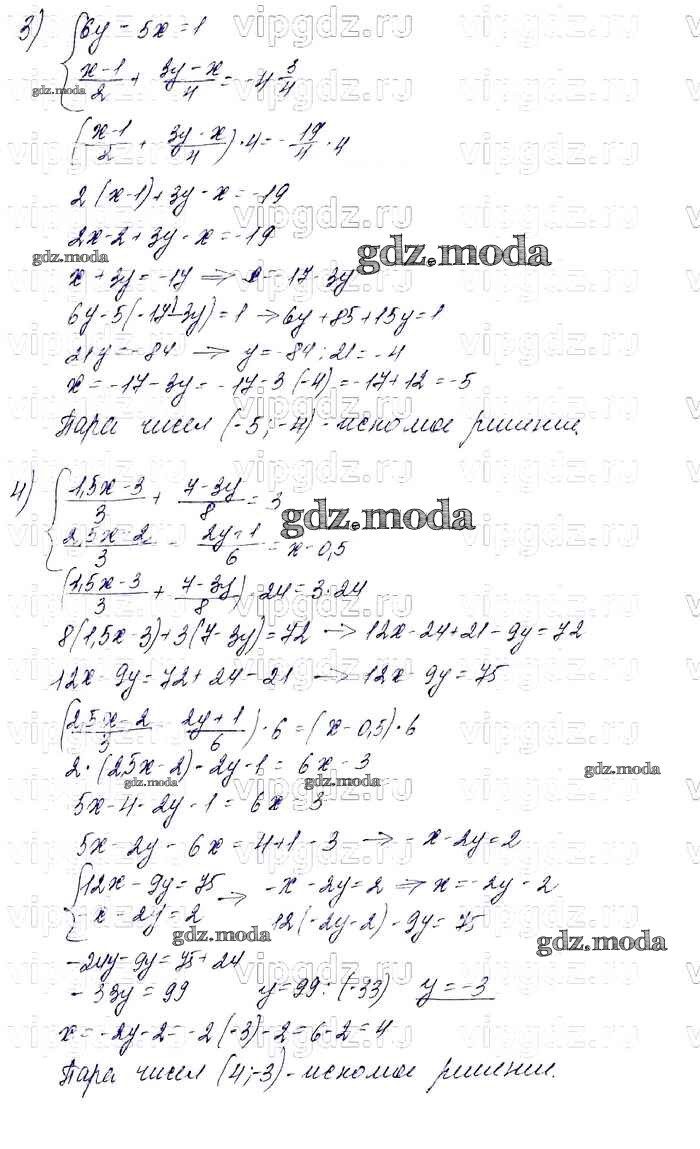 3) { 6y - 5x = 1
(x-1)/2 + (3y-x)/4 = -4 3/4
gdz.moda
((x-1)/2 + (3y-x)/4) · 4 = -19/4 · 4
2(x-1) + 3y - x = -19
2x - 2 + 3y - x = -19
gdz.moda
gdz.moda
x + 3y = -17 => x = -17 - 3y
6y - 5(-17-3y) = 1 → 6y + 85 + 15y = 1
21y = -84 → y = -84 : 21 = -4
x = -17 - 3y = -17 - 3(-4) = -17 + 12 = -5
Пара чисел (-5; -4) - искомое решение.
4) { (1,5x-3)/3 + (7-3y)/8 = 3
gdz.moda
(2,5x-2)/3 - (2y+1)/6 = x - 0,5
((1,5x-3)/3 + (7-3y)/8) · 24 = 3·24
8(1,5x-3) + 3(7-3y) = 72 → 12x - 24 + 21 - 9y = 72
12x - 9y = 72 + 24 - 21 → 12x - 9y = 75
((2,5x-2)/3 - (2y+1)/6) · 6 = (x - 0,5) · 6
2·(2,5x-2) - 2y - 1 = 6x - 3
gdz.moda
gdz.moda
5x - 4 - 2y - 1 = 6x - 3
5x - 2y - 6x = 4 + 1 - 3 → -x - 2y = 2
{ 12x - 9y = 75 → -x - 2y = 2 => x = -2y - 2
-x - 2y = 2 12(-2y-2) - 9y = 75
gdz.moda
gdz.moda
-24y - 9y = 75 + 24
-33y = 99 y = 99 : (-33) y = -3
x = -2y - 2 = -2(-3) - 2 = 6 - 2 = 4
Пара чисел (4; -3) - искомое решение.